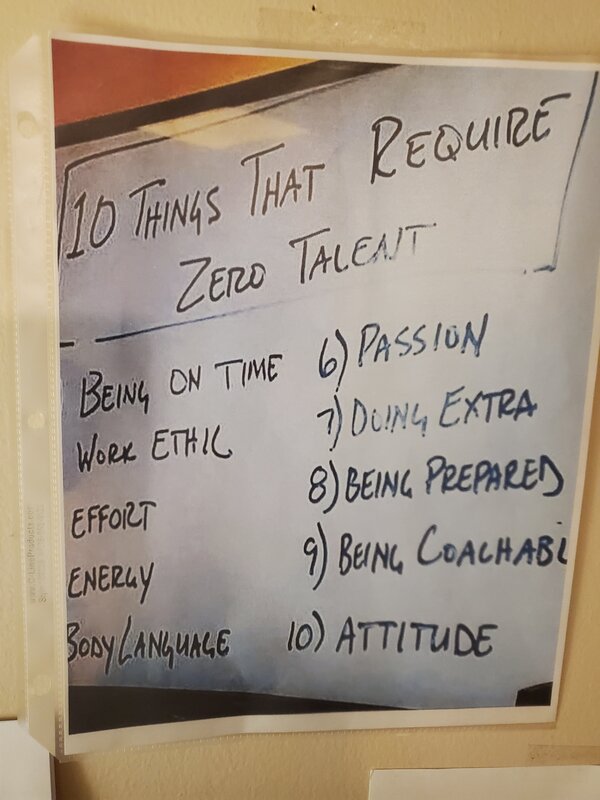 10 THINGS THAT REQUIRE
ZERO TALENT
BEING ON TIME
WORK ETHIC
EFFORT
ENERGY
BODY LANGUAGE
6) PASSION
7) DOING EXTRA
8) BEING PREPARED
9) BEING COACHABL
10) ATTITUDE